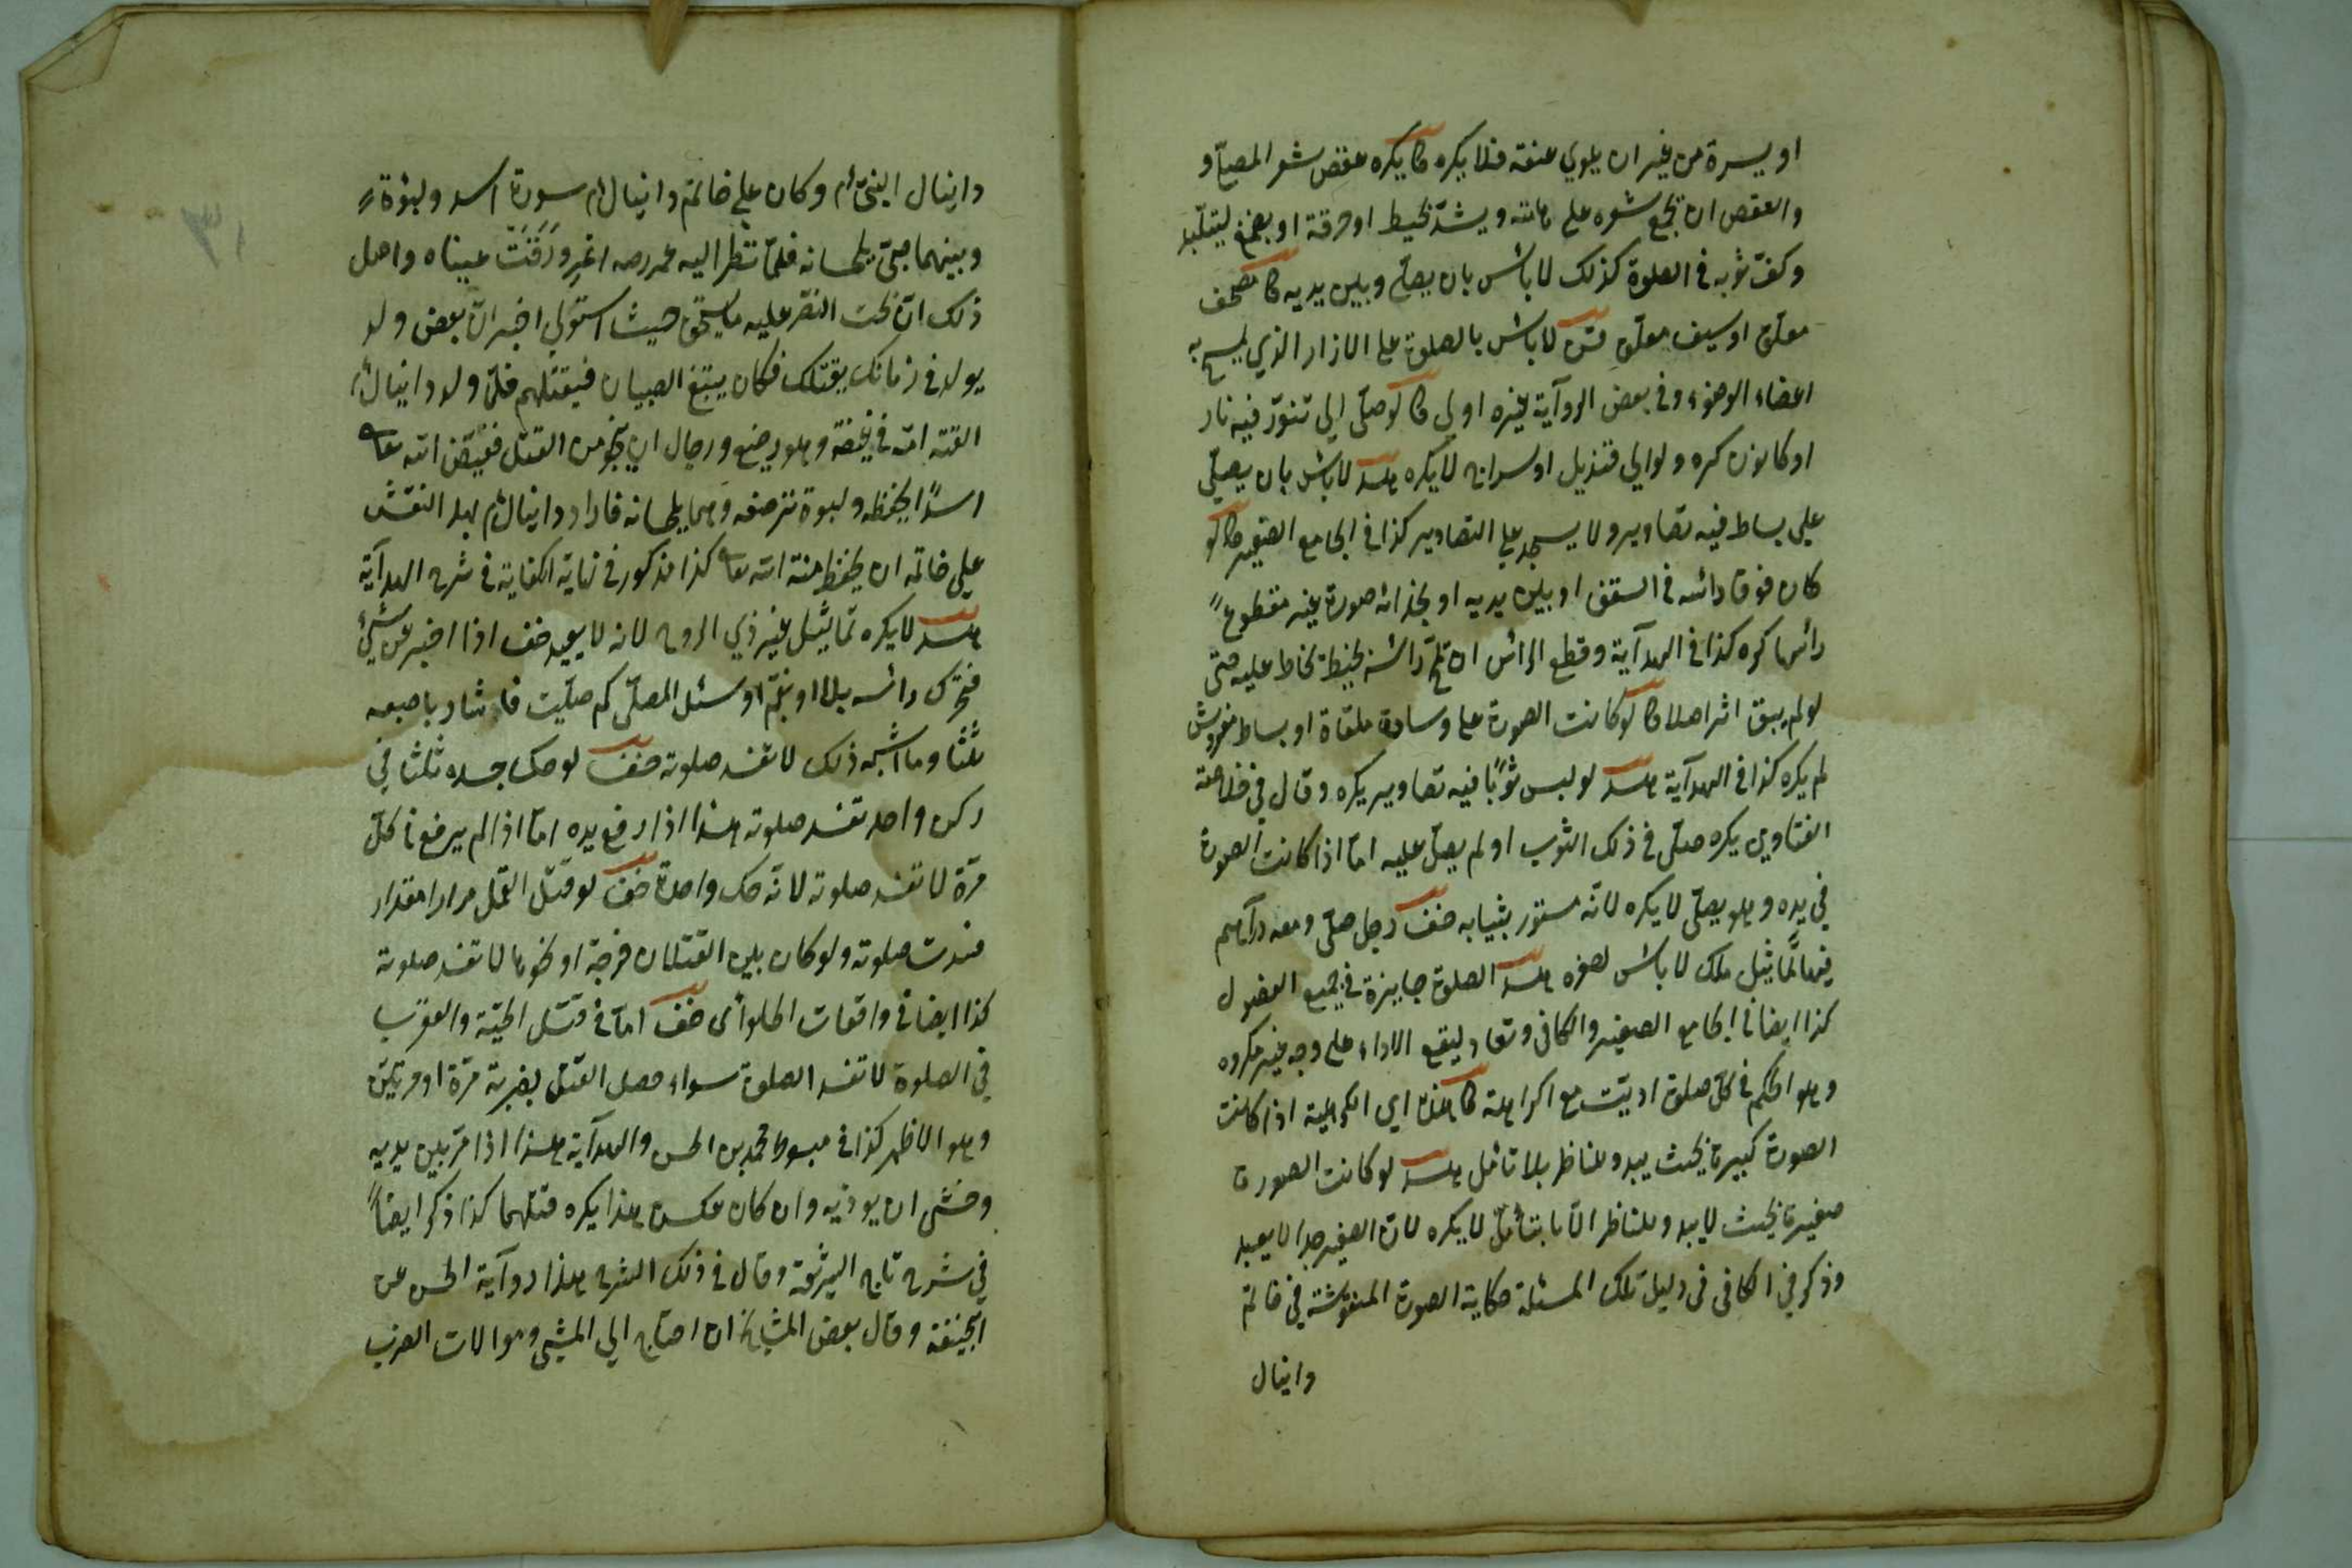 او يسرة من غير ان يلوي عنقه فلا يكره كا يكره عقص شعر المصلي و
والعقص ان يجمع شعره على هامته ويشد بخيط او خرقة او بصمغ ليتلبد
وكف ثوبه في الصلوة كذلك لا بأس بان يصلي وبين يديه كا مصحف
معلق او سيف معلق لا بأس بالصلوة على الازار الذي يمسح به
اعضاء الوضوء وفي بعض الروآية غيره اولى كا لو صلى الى تنور فيه نار
او كانون كره ولو الى قنديل او سراج لا يكره هد لا بأس بان يصلي
على بساط فيه تصاوير ولا يسجد على التصاوير كذا في الجامع الصغير كا لو
كان فوق رائسه في السقف او بين يديه او بحذائه صورة غير مقطوع
رائسها كره كذا في الهدآية وقطع الرائس ان رائسه بخيط يخاط عليه حتى
لو لم يبق اثر اصلا كا لو كانت الصورة على وسادة ملقاة او بساط مفروش
لم يكره كذا في الهدآية هد لو لبس ثوبًا فيه تصاوير يكره وقال في خلاصة
الفتاوى يكره صلى في ذلك الثوب او لم يصل عليه اما اذا كانت الصورة
في يده وهو يصلي لا يكره لانه مستور بثيابه خف رجل صلى ومعه درآهم
فيها تماثيل ملك لا بأس لصغره هد الصلوة جايزة في جميع الفصول
كذا ايضا في الجامع الصغير والكافي وتعاد ليقع الاداء على وجه غير مكروه
وهو الحكم في كل صلوة اديت مع اكراهة كا هذا اي الكراهية اذا كانت
الصورة كبيرة بحيث يبدو للناظر بلا تأمل هد لو كانت الصورة
صغيرة بحيث لا يبدو للناظر الا بتأمل لا يكره لان الصغير جدا لا يعبد
وذكر في الكافي في دليل تلك المسئلة حكاية الصورة المنقوشة في خاتم
دانيال
٣١
دانيال النبي ءم وكان على خاتم دانيال ءم سورة اسد ولبؤة
وبينهما صبي يلحسانه فلما نظر اليه عمر رضه اغرورقت عيناه واصل
ذلك ان بخت النصر عليه ما يستحق حيث استولى اخبر ان بعض ولد
يولد في زمانك يقتلك فكان يتبع الصبيان فيقتلهم فلما ولد دانيال ءم
القته امه في غيضة وهو رضيع ورجال ان ينجو من القتل فقيض الله تعا
اسدًا يحفظه ولبوة ترضعه وهما يلحسانه فاراد دانيال ءم بهذا النقش
على خاتمه ان يحفظ منة الله تعا كذا مذكور في نهاية الكفاية في شرح الهدآية
هد لا يكره تماثيل غير ذي الروح لانه لا يعبد خف اذا اخبر عن شيء
فحرك رائسه بلا او بنعم او سئل المصلي كم صليت فاشار باصبعه
ثلثا وما اشبه ذلك لا تفسد صلوته خف لو حك جسده ثلثا في
ركن واحد تفسد صلوته هذا اذا رفع يده اما اذا لم يرفع في كل
مرة لا تفسد صلوته لانه حك واحدة خف لو قتل القمل مرارا مقدار
فسدت صلوته ولو كان بين القتلان فرجة او نحوها لا تفسد صلوته
كذا ايضا في واقعات الحلوائى خف اما في قتل الحية والعقرب
في الصلوة لا تفسد الصلوة سواء حصل القتل بضربة مرة او مرتين
وهو الاظهر كذا في مبسوط محمد بن الحسن والهدآية هذا اذا مر بين يديه
وخشى ان يوذيه وان كان عكس هذا يكره قتلهما كذا ذكر ايضا
في شرح تاج الشريعة وقال في ذلك الشرح هذا روآية الحسن عن
ابحنيفة وقال بعض المشايخ ان احتاج الى المشي وموالات الضرب